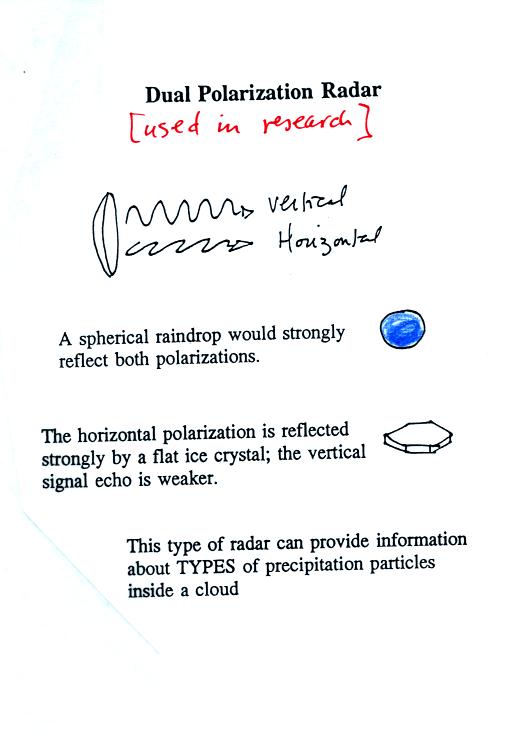 Dual Polarization Radar
[used in research]
vertical
Horizontal
A spherical raindrop would strongly
reflect both polarizations.
The horizontal polarization is reflected
strongly by a flat ice crystal; the vertical
signal echo is weaker.
This type of radar can provide information
about TYPES of precipitation particles
inside a cloud